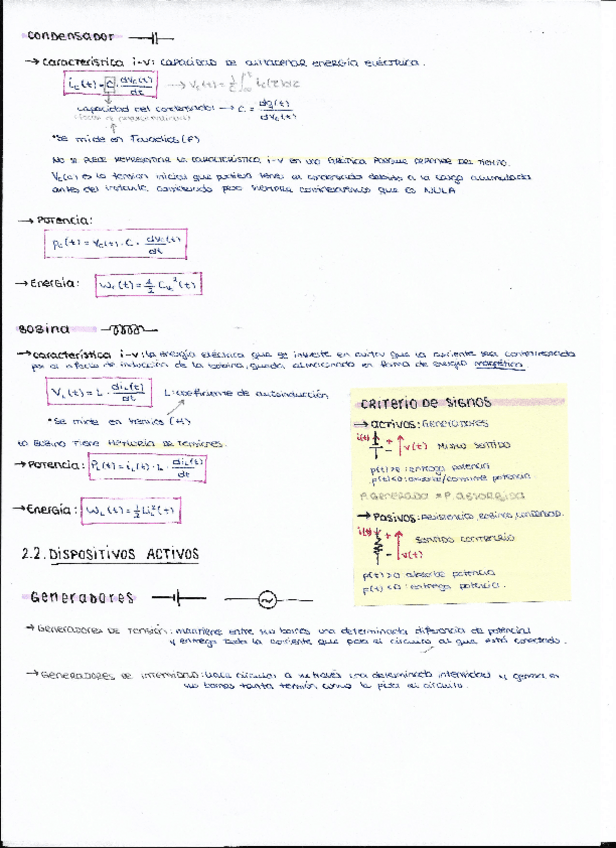 condensador
→ característica i-v: capacidad de almacenar energía eléctrica.
i_c(t) = C · dv_c(t)/dt → v_c(t) = 1/C ∫ i_c(τ) dτ
capacidad del condensador → C = dq(t)/dv_c(t)
*Se mide en Faradios (F)
NO SE PUEDE REPRESENTAR LA CARACTERÍSTICA i-v EN UNA GRÁFICA PORQUE DEPENDE DEL TIEMPO.
V_c(t) es la tensión inicial que pudiera tener el condensador debido a la carga acumulada
antes del instante, considerado pero siempre consideraremos que es NULA
→ Potencia:
p_c(t) = v_c(t) · C · dv_c(t)/dt
→ Energía: W_c(t) = 1/2 C v_c²(t)
Bobina
→ característica i-v: la energía eléctrica que se invierte en evitar que la corriente sea
por el efecto de inducción de la bobina, queda almacenada en forma de energía magnética.
V_L(t) = L · di_L(t)/dt L: coeficiente de autoinducción
*Se mide en Henrios (H)
La bobina tiene memoria de tensiones.
→ Potencia: P_L(t) = i_L(t) · L · di_L(t)/dt
→ Energía: W_L(t) = 1/2 L i_L²(t)
CRITERIO DE SIGNOS
→ activos: Generadores
i(t) + v(t) Mismo sentido
p(t)>0: entrega potencia
p(t)<0: absorbe/consume potencia
P. Generado = P. absorbida
→ Pasivos: Resistencia, bobina, condensad.
i(t) v(t) Sentido contrario
p(t)>0 absorbe potencia
p(t)<0: entrega potencia.
2.2. DISPOSITIVOS ACTIVOS
Generadores
→ Generadores de tensión: mantiene entre sus bornes una determinada diferencia de potencial
y entrega toda la corriente que pida el circuito al que está conectado.
→ Generadores de intensidad: hace circular a su través una determinada intensidad y genera en
sus bornes tanta tensión como le pida el circuito.